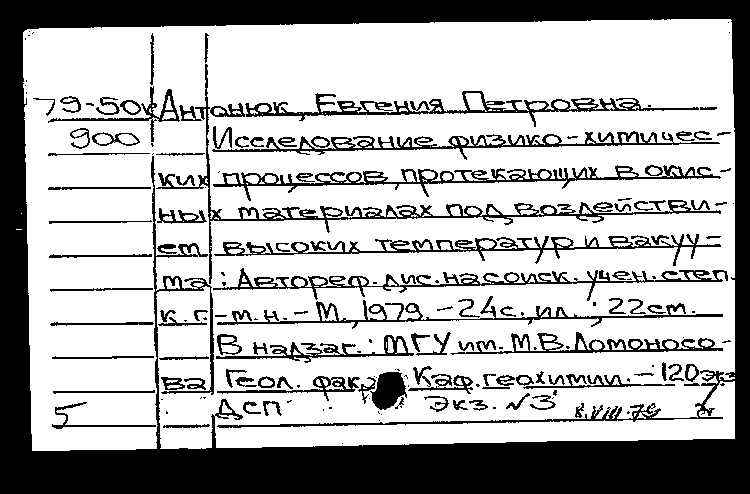 79-50к Антонюк, Евгения Петровна.
900 Исследование физико-химичес-
ких процессов, протекающих в окис-
ных материалах под воздействи-
ем высоких температур и вакуу-
ма : Автореф. дис. на соиск. учен. степ.
к. г.-м. н. - М., 1979. - 24 с., ил. ; 22 см.
В надзаг.: МГУ им. М.В. Ломоносо-
ва Геол. фак. Каф. геохимии. - 120 экз
5 ДСП Экз. №3